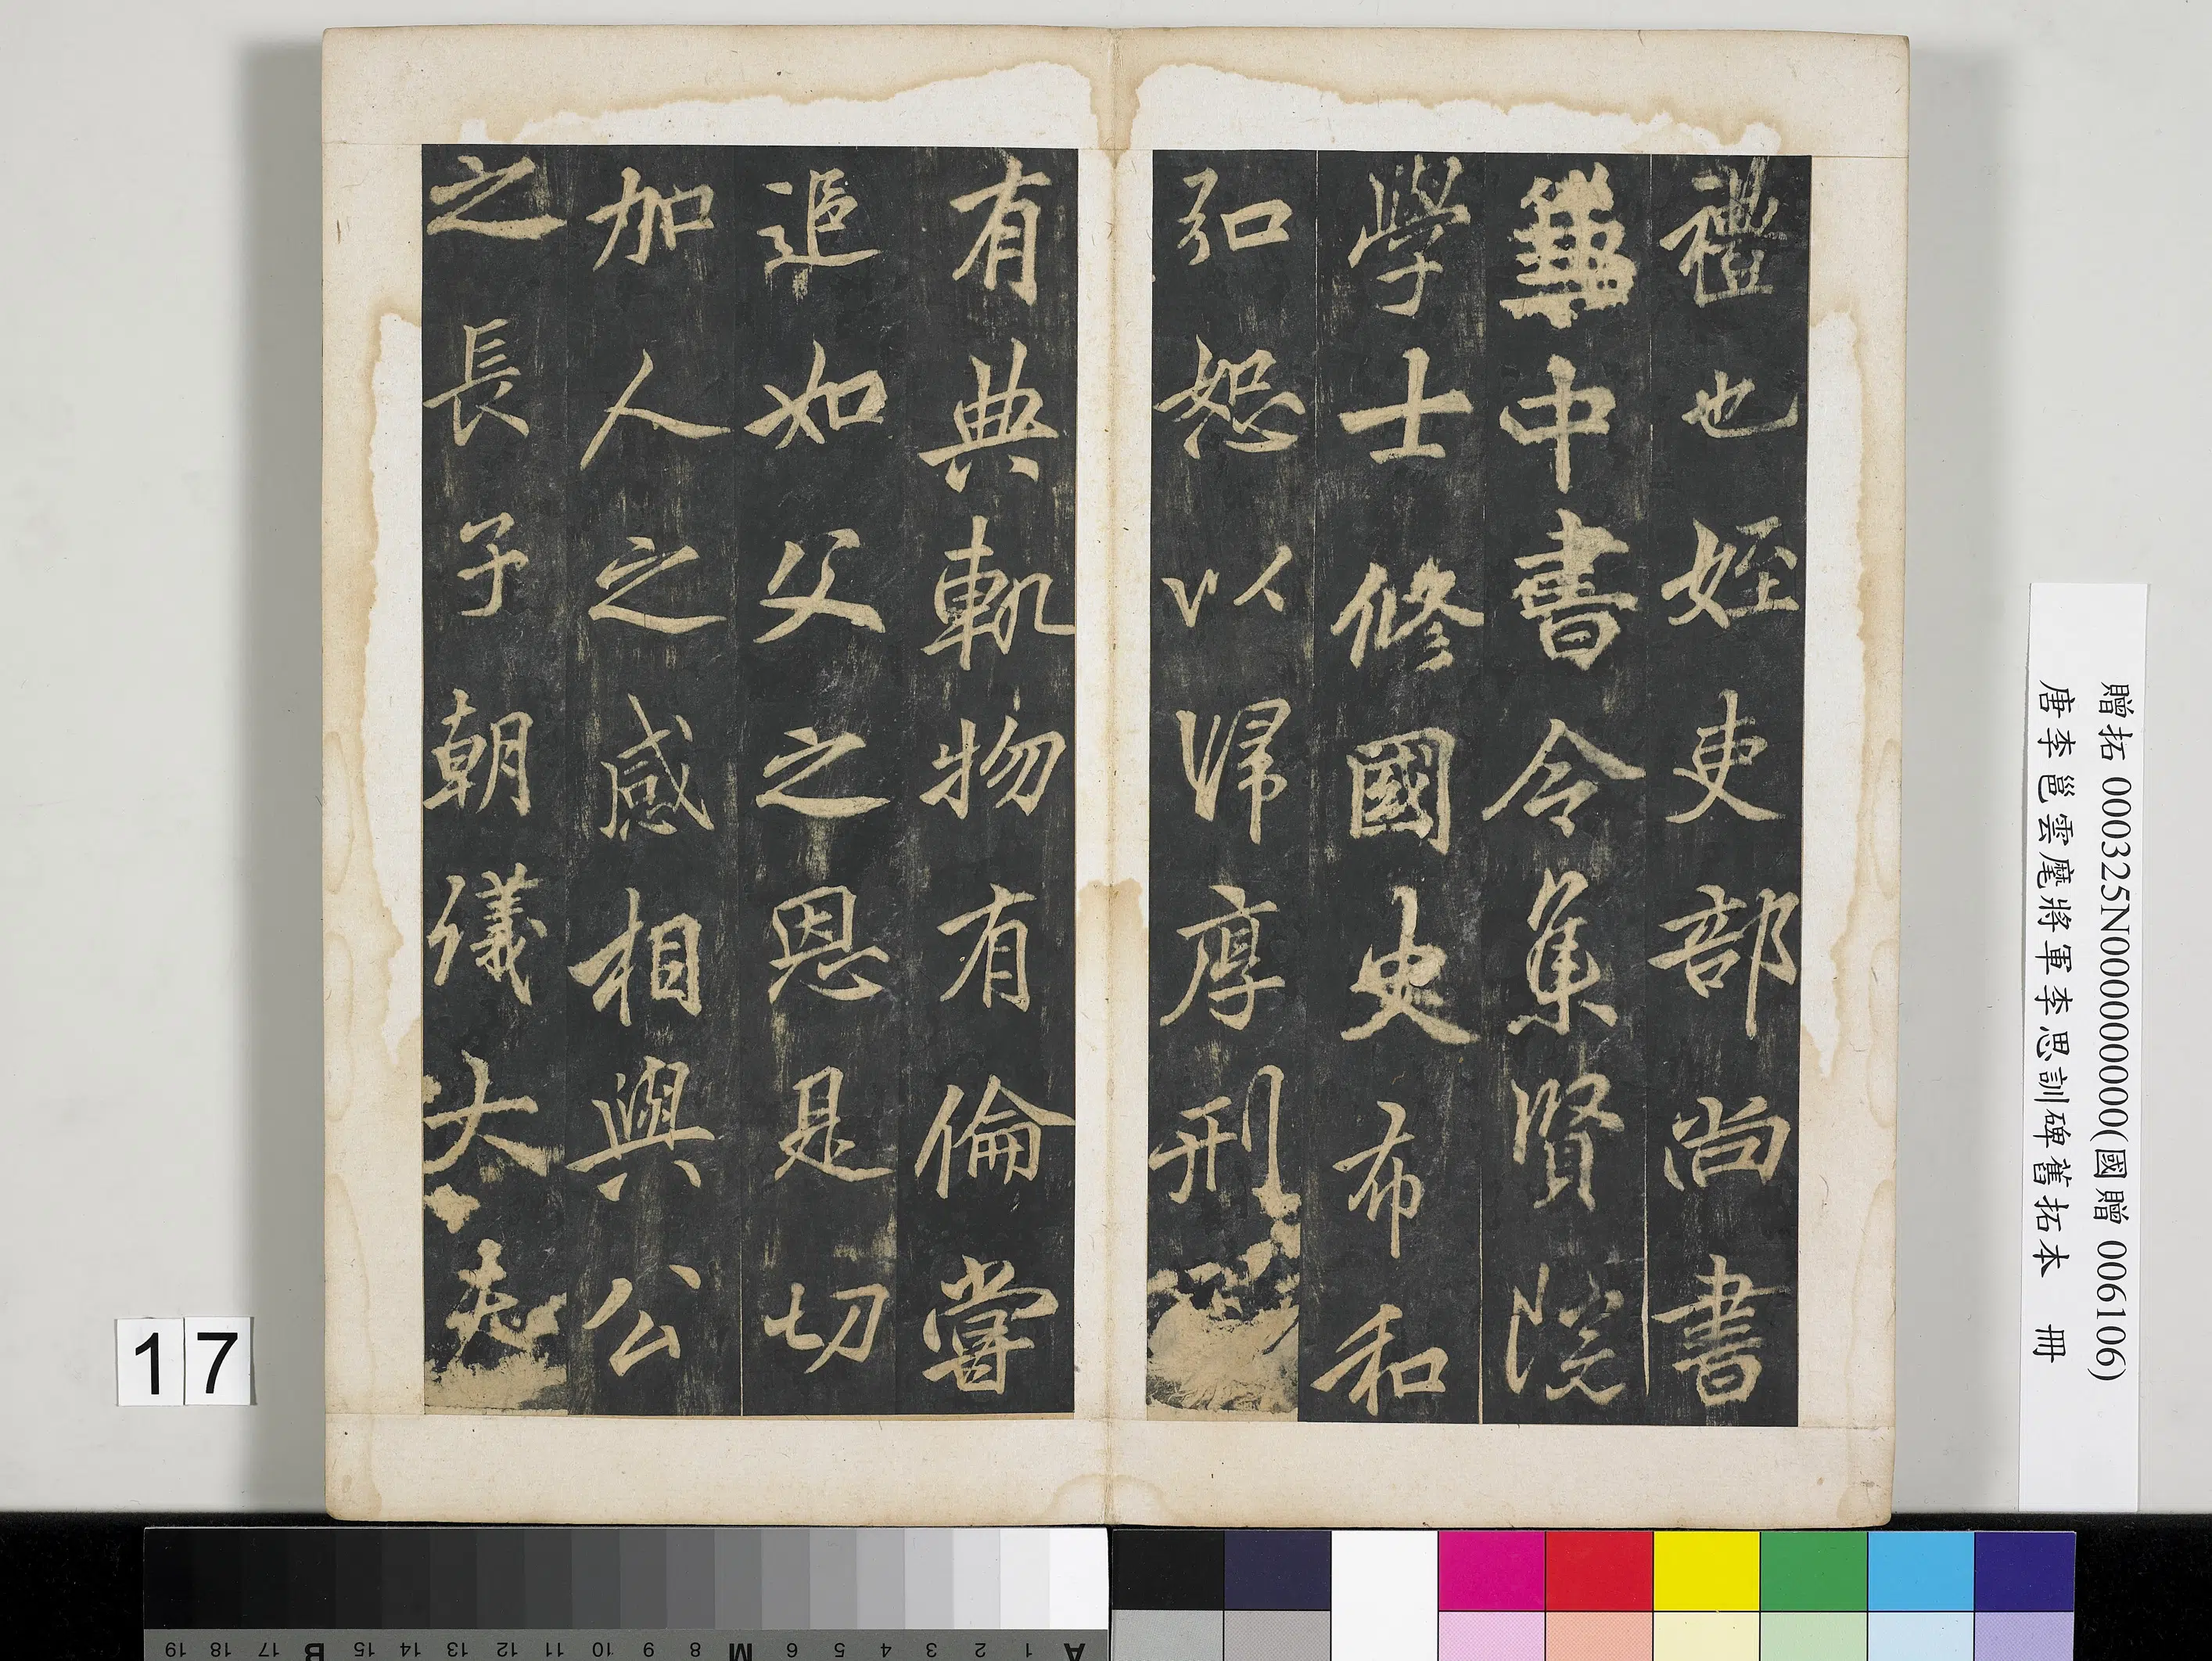 禮也姪吏部尚書
兼中書令集賢院
學士修國史布和
弘恕以歸厚刑
有典軌物有倫嘗
追如父之恩是切
加人之感相與公
之長子朝儀大夫
贈拓 000325N000000000(國贈 006106)
唐李邕雲麾將軍李思訓碑舊拓本 冊
17
A 1 2 3 4 5 6 M 8 9 10 11 12 13 14 15 B 17 18 19